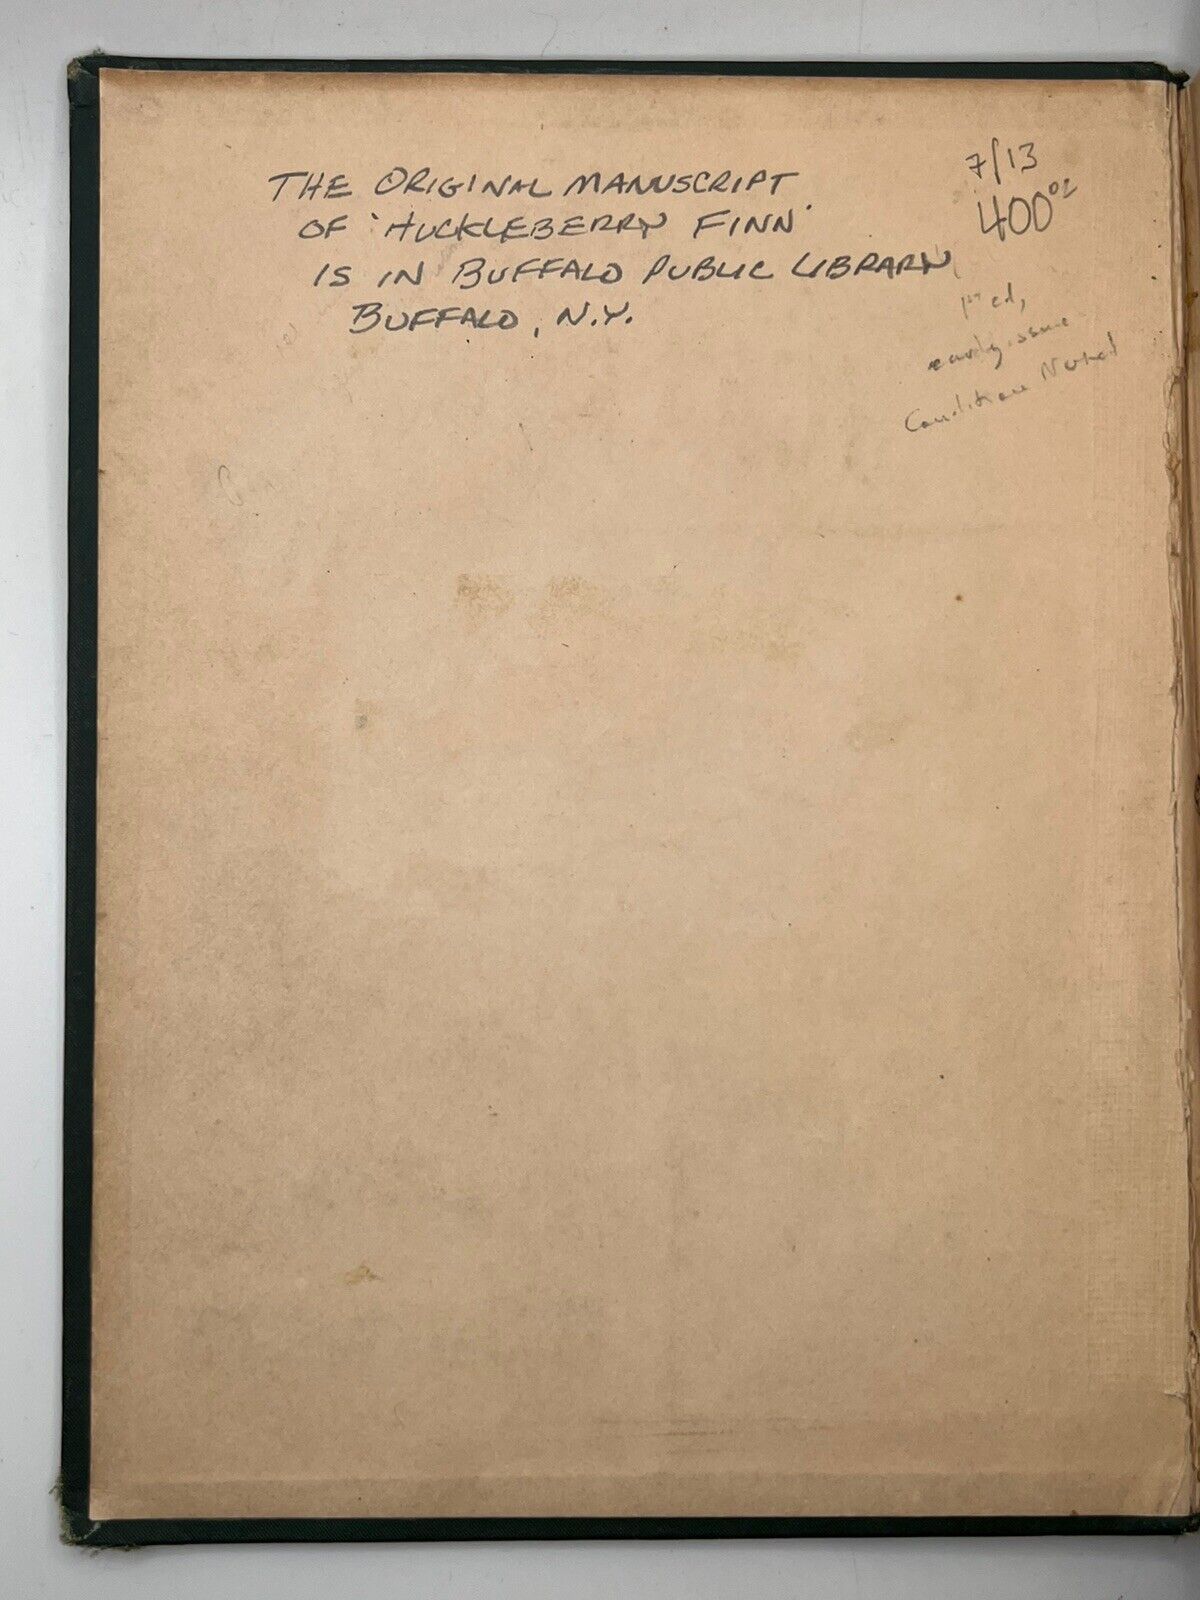 THE ORIGINAL MANUSCRIPT
OF 'HUCKLEBERRY FINN'
IS IN BUFFALO PUBLIC LIBRARY,
BUFFALO, N.Y.
7/13
400
1st ed,
early issue
Condition Noted